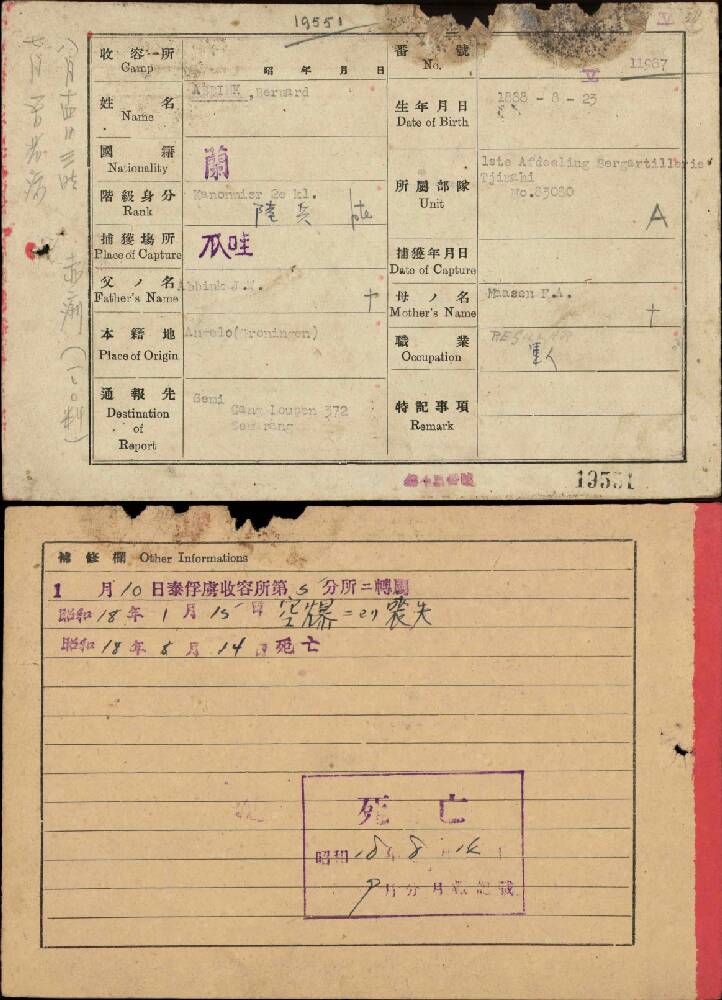 19551
收容所
Camp
昭 年 月 日
番號
No.
11967
姓名
Name
ABBINK, Bernard
生年月日
Date of Birth
1888 - 8 - 23
國籍
Nationality
蘭
所屬部隊
Unit
1ste Afdeeling Bergartillerie
Tjimahi
No.83080
A
階級身分
Rank
Kanonnier 2e kl.
陸 兵 pte
捕獲場所
Place of Capture
爪哇
捕獲年月日
Date of Capture
父ノ名
Father's Name
Abbink J.W.
母ノ名
Mother's Name
Maasen F.A.
本籍地
Place of Origin
Angelo(Groningen)
職業
Occupation
REGULAR
軍人
通報先
Destination
of
Report
Semi
Gang Loupon 372
Semarang
特記事項
Remark
八月十四日
赤痢
19551
補修欄 Other Informations
1月10日泰俘虜收容所第5分所ニ轉屬
昭和18年1月15日空爆ニヨリ震失
昭和18年8月14日死亡
死亡
昭和18年8月14
9月分月報記載